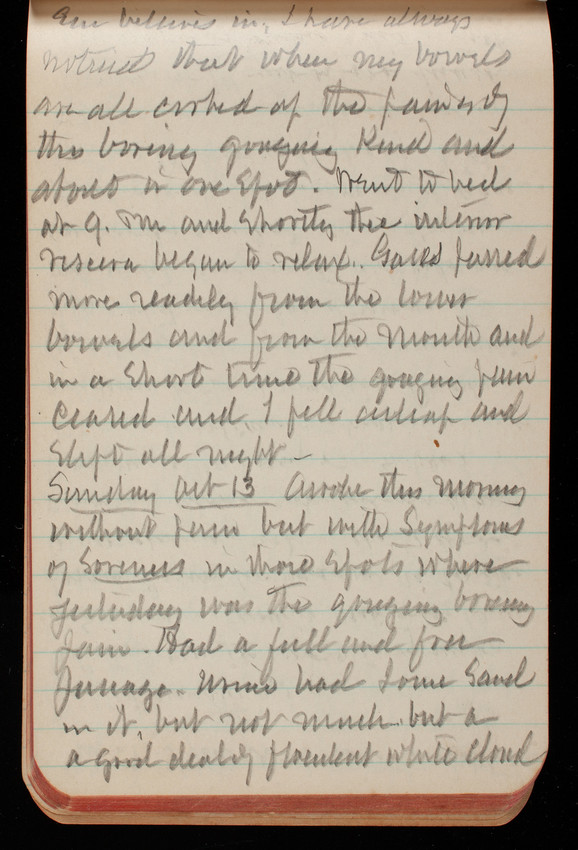 believes in, I have always
noticed that when my bowels
are all corked up the pain is of
this boring gouging kind and
about in one spot. Went to bed
at 9. PM and shortly the interior
viscera began to relax. Gases passed
more readily from the lower
bowels and from the mouth and
in a short time the gouging pain
ceased and, I fell asleep and
slept all night -
Sunday Oct 13 Awoke this morning
without pain but with symptoms
of soreness in those spots where
yesterday was the gouging boring
pain. Had a full and free
passage. Urine had some sand
in it, but not much but a
a good deal of flocculent white cloud